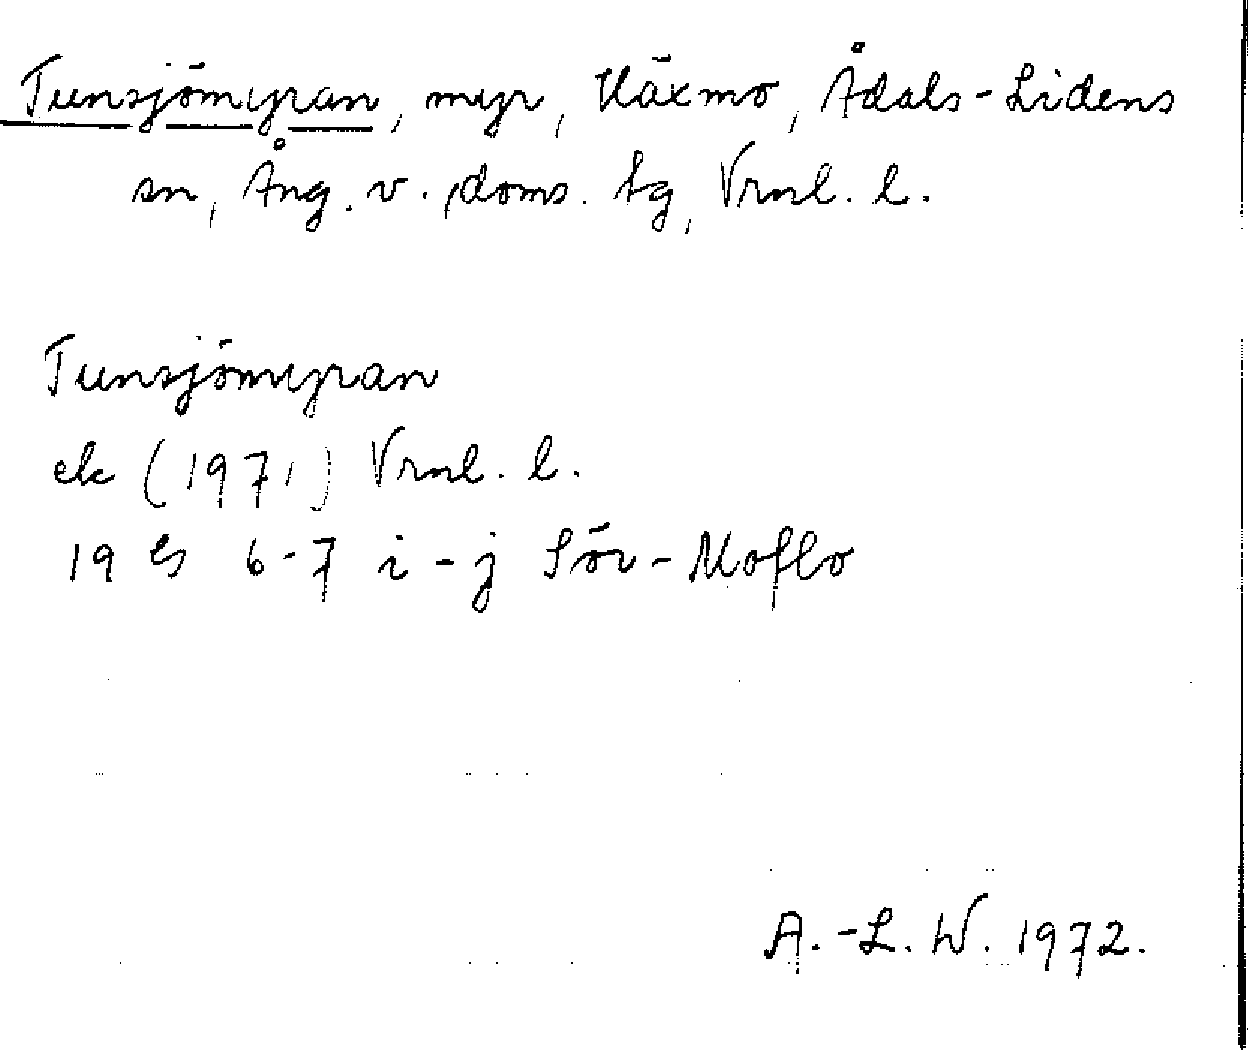 Tunsjömyran, myr, Näxmo, Ådals-Lidens
sn, Ång. v. doms. tg, Vrnl. l.
Tunsjömyran
ek (1971) Vrnl. l.
19 6-7 i-j Sör-Moflo
A.-L. W. 1972.